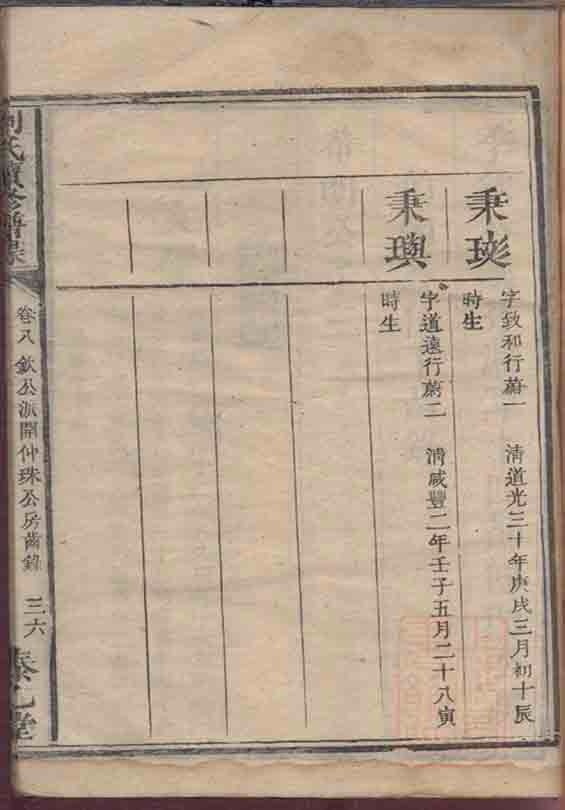 秉琰
字敦和行蔚一 清道光三十年庚戌三月初十辰
時生
秉璵
字道遠行蔚二 清咸豐二年壬子五月二十八寅
時生
氏續修譜
卷八 欽公派開仲珠公房齒錄 三六
堂